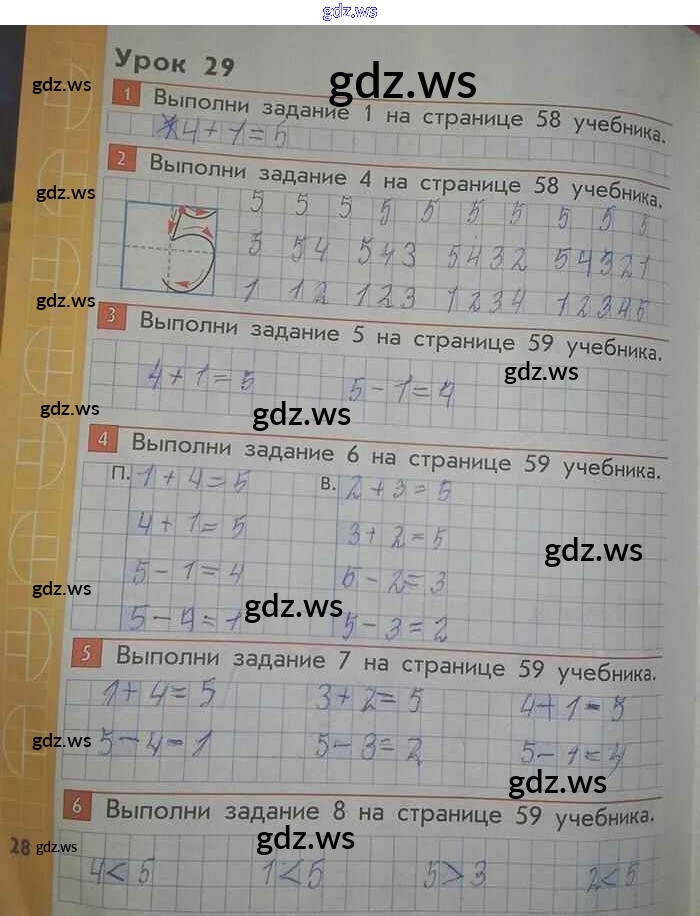 gdz.ws
Урок 29
gdz.ws
gdz.ws
1 Выполни задание 1 на странице 58 учебника.
4+1=5
2 Выполни задание 4 на странице 58 учебника.
gdz.ws
gdz.ws
5 5 5 5 5 5 5 5 5 5
5 54 543 5432 54321
gdz.ws
1 12 123 1234 12345
3 Выполни задание 5 на странице 59 учебника.
4+1=5 5-1=4
gdz.ws
gdz.ws
gdz.ws
4 Выполни задание 6 на странице 59 учебника.
П. 1+4=5 В. 2+3=5
4+1=5 3+2=5
gdz.ws
5-1=4 5-2=3
gdz.ws
gdz.ws
5-4=1 5-3=2
5 Выполни задание 7 на странице 59 учебника.
1+4=5 3+2=5 4+1=5
gdz.ws
5-4=1 5-3=2 5-1=4
gdz.ws
6 Выполни задание 8 на странице 59 учебника.
gdz.ws
28 gdz.ws
4<5 1<5 5>3 2<5